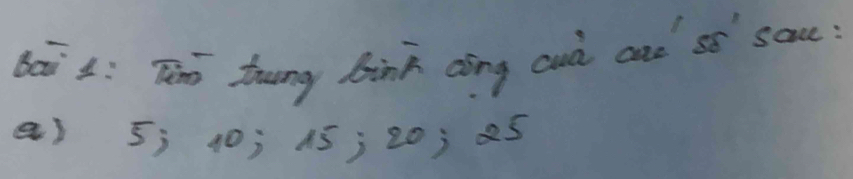 Bài 1: Tìm trung bình cộng của các số sau:
a) 5; 10; 15; 20; 25